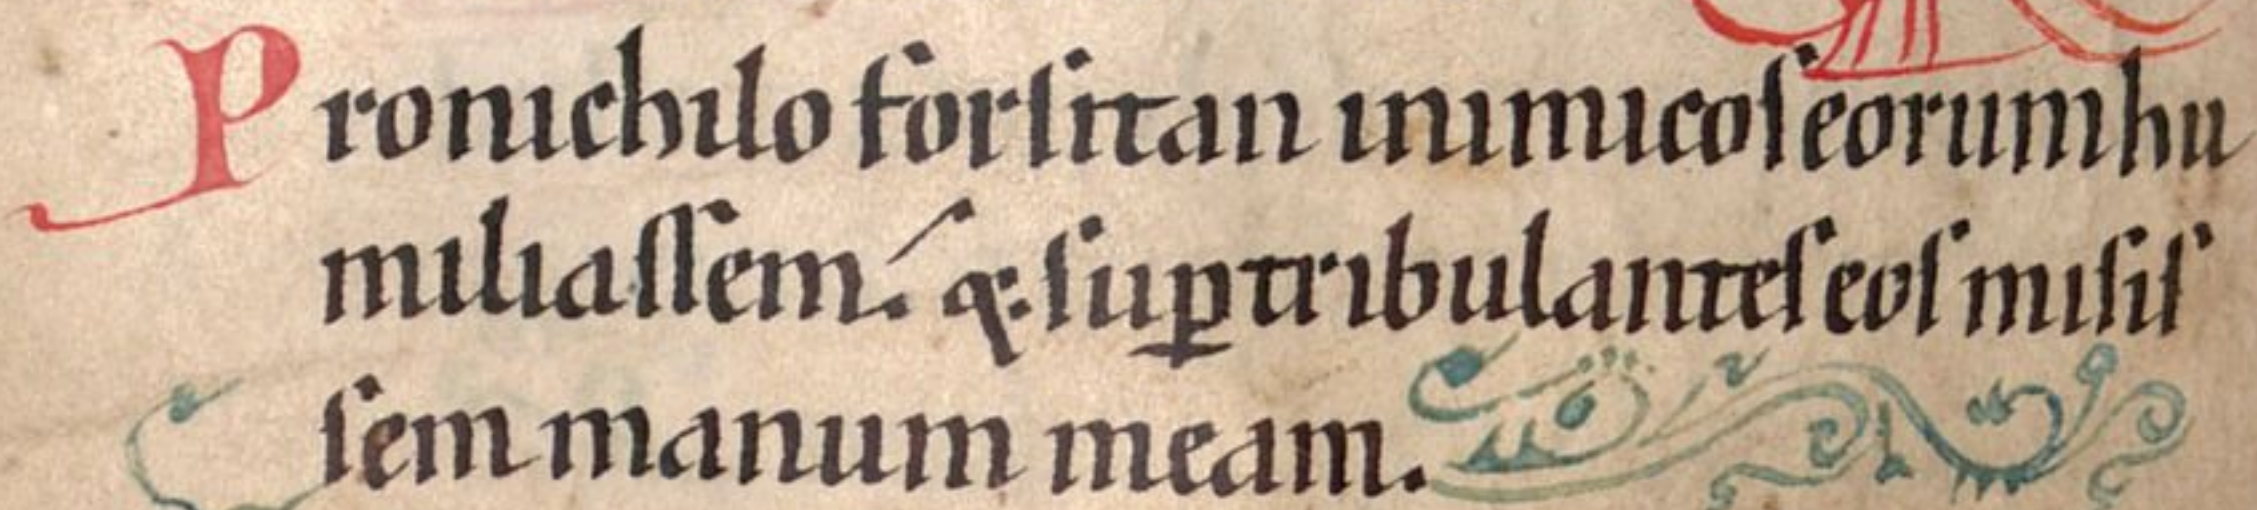 Pronichilo forſitan inimicoſ eorum hu
miliaſſem. q; ſuꝑ tribulanteſ eoſ miſiſ
ſem manum meam.